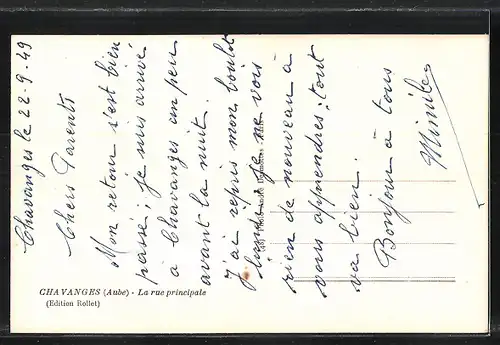 Chavanges le 22-9-49
Chers Parents
Mon retour s'est bien
passé; je suis arrivé
a Chavanges un peu
avant la nuit.
J'ai repris mon boulot
je ne vois
rien de nouveau a
vous apprendres; tout
va bien.
Bonjour à tous
Mimile
CHAVANGES (Aube) - La rue principale
(Edition Rollet)